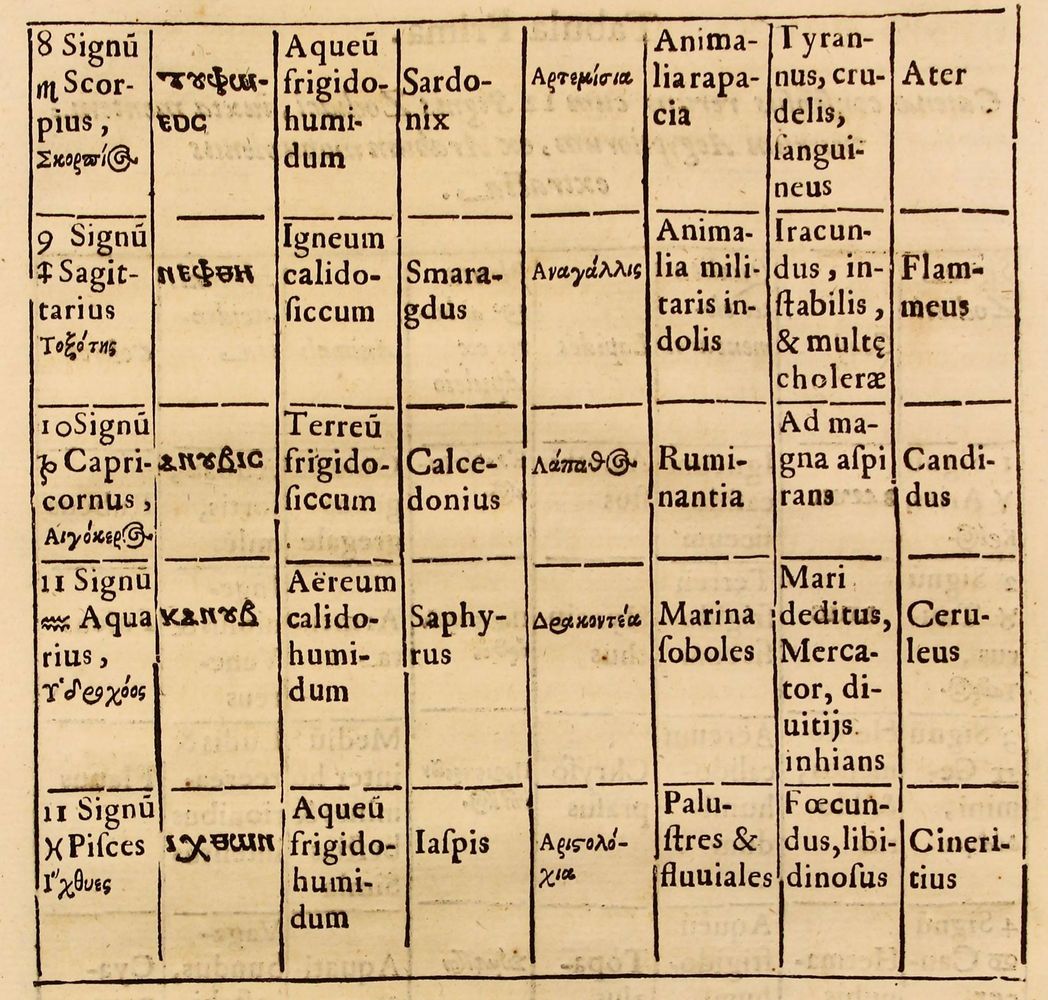 8 Signũ
♏ Scor-
pius,
Σκορπίος
ⲉⲟⲥ
Aqueũ
frigido-
humi-
dum
Sardo-
nix
Αρτεμίσια
Anima-
lia rapa-
cia
Tyran-
nus, cru-
delis,
sangui-
neus
Ater
9 Signũ
♐ Sagit-
tarius
Τοξότης
ⲛⲉⲫⲑⲏ
Igneum
calido-
ſiccum
Smara-
gdus
Αναγάλλις
Anima-
lia mili-
taris in-
dolis
Iracun-
dus, in-
ſtabilis,
& multę
choleræ
Flam-
meus
10 Signũ
♑ Capri-
cornus,
Αιγόκερος
ⲁⲛȣⲃⲓⲥ
Terreũ
frigido-
ſiccum
Calce-
donius
Λάπαθος
Rumi-
nantia
Ad ma-
gna aſpi
rans
Candi-
dus
11 Signũ
♒ Aqua
rius,
Ὑδροχόος
ⲕⲁⲛȣⲃ
Aëreum
calido-
humi-
dum
Saphy-
rus
Δρακοντέα
Marina
ſoboles
Mari
deditus,
Merca-
tor, di-
uitijs
inhians
Ceru-
leus
11 Signũ
♓ Piſces
Ἰχθυες
ⲓⲭⲑⲱⲛ
Aqueũ
frigido-
humi-
dum
Iaſpis
Αριϛολό-
χια
Palu-
ſtres &
fluuiales
Fœcun-
dus, libi-
dinoſus
Cineri-
tius